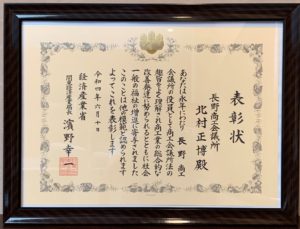 表彰状
長野商工会議所
北村正博殿
あなたは永年にわたり長野商工
会議所の役員として商工会議所法の
趣旨をよく理解され商工業の総合的な
改善発達に努められるとともに社会
一般の福祉の増進に寄与されました
このことは他の模範と認められます
よってこれを表彰します
令和四年六月
経済産業省
関東経済産業局長 濱野幸一